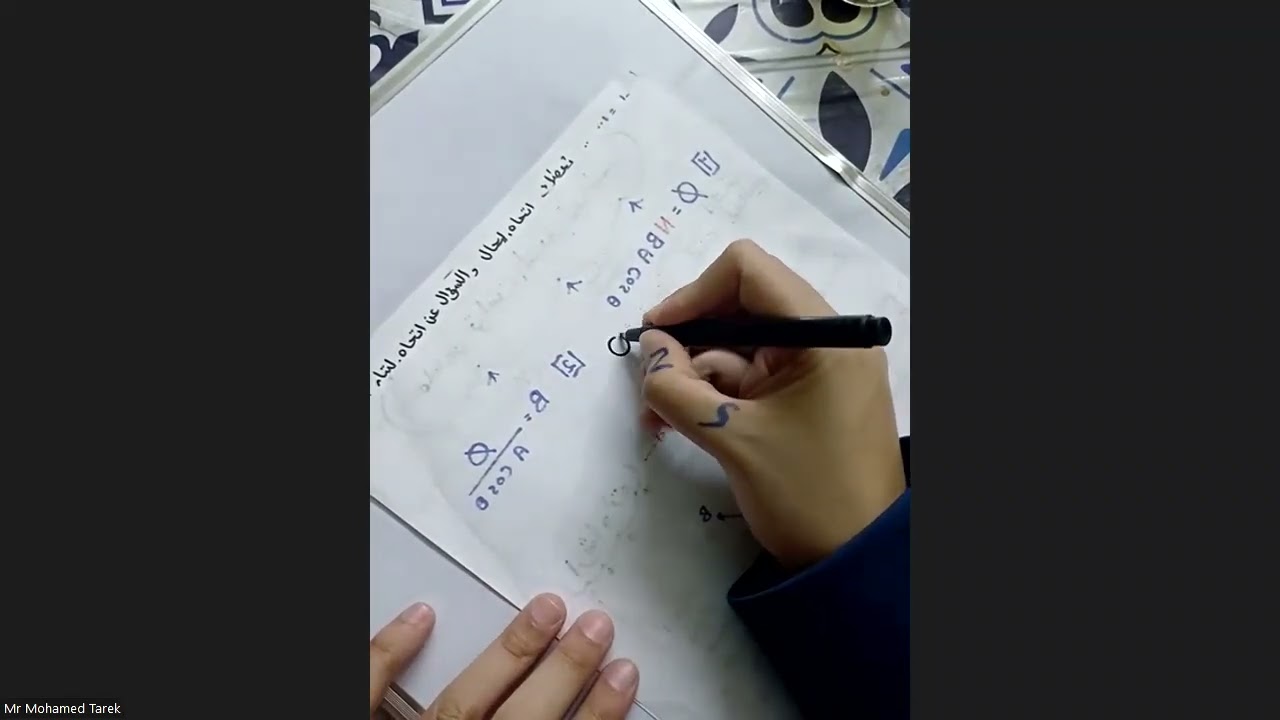 اتجاه المجال والسؤال عن اتجاه
[1] Φ = N B A cos θ
[2] B = Φ / A cos θ
B
N
S
Mr Mohamed Tarek